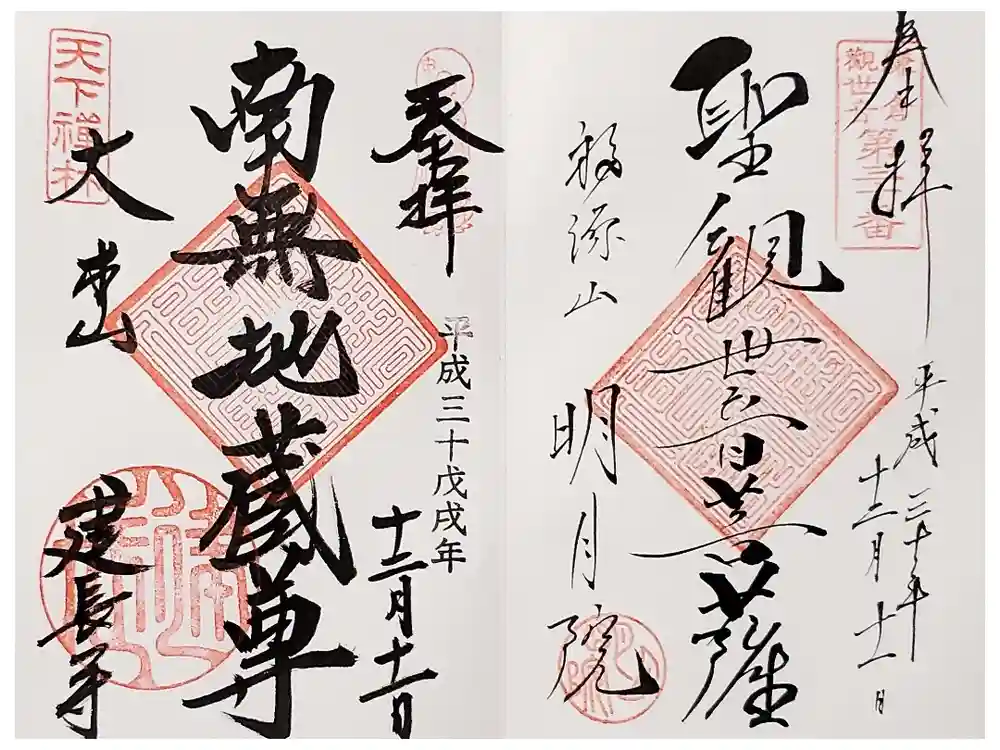 奉拝
觀世音第三十番
平成三十年
十二月十一日
聖観世音菩薩
福源山
明月院
奉拝
平成三十戊戌年
十二月十一日
南無地蔵尊
天下禅林
大
建長寺